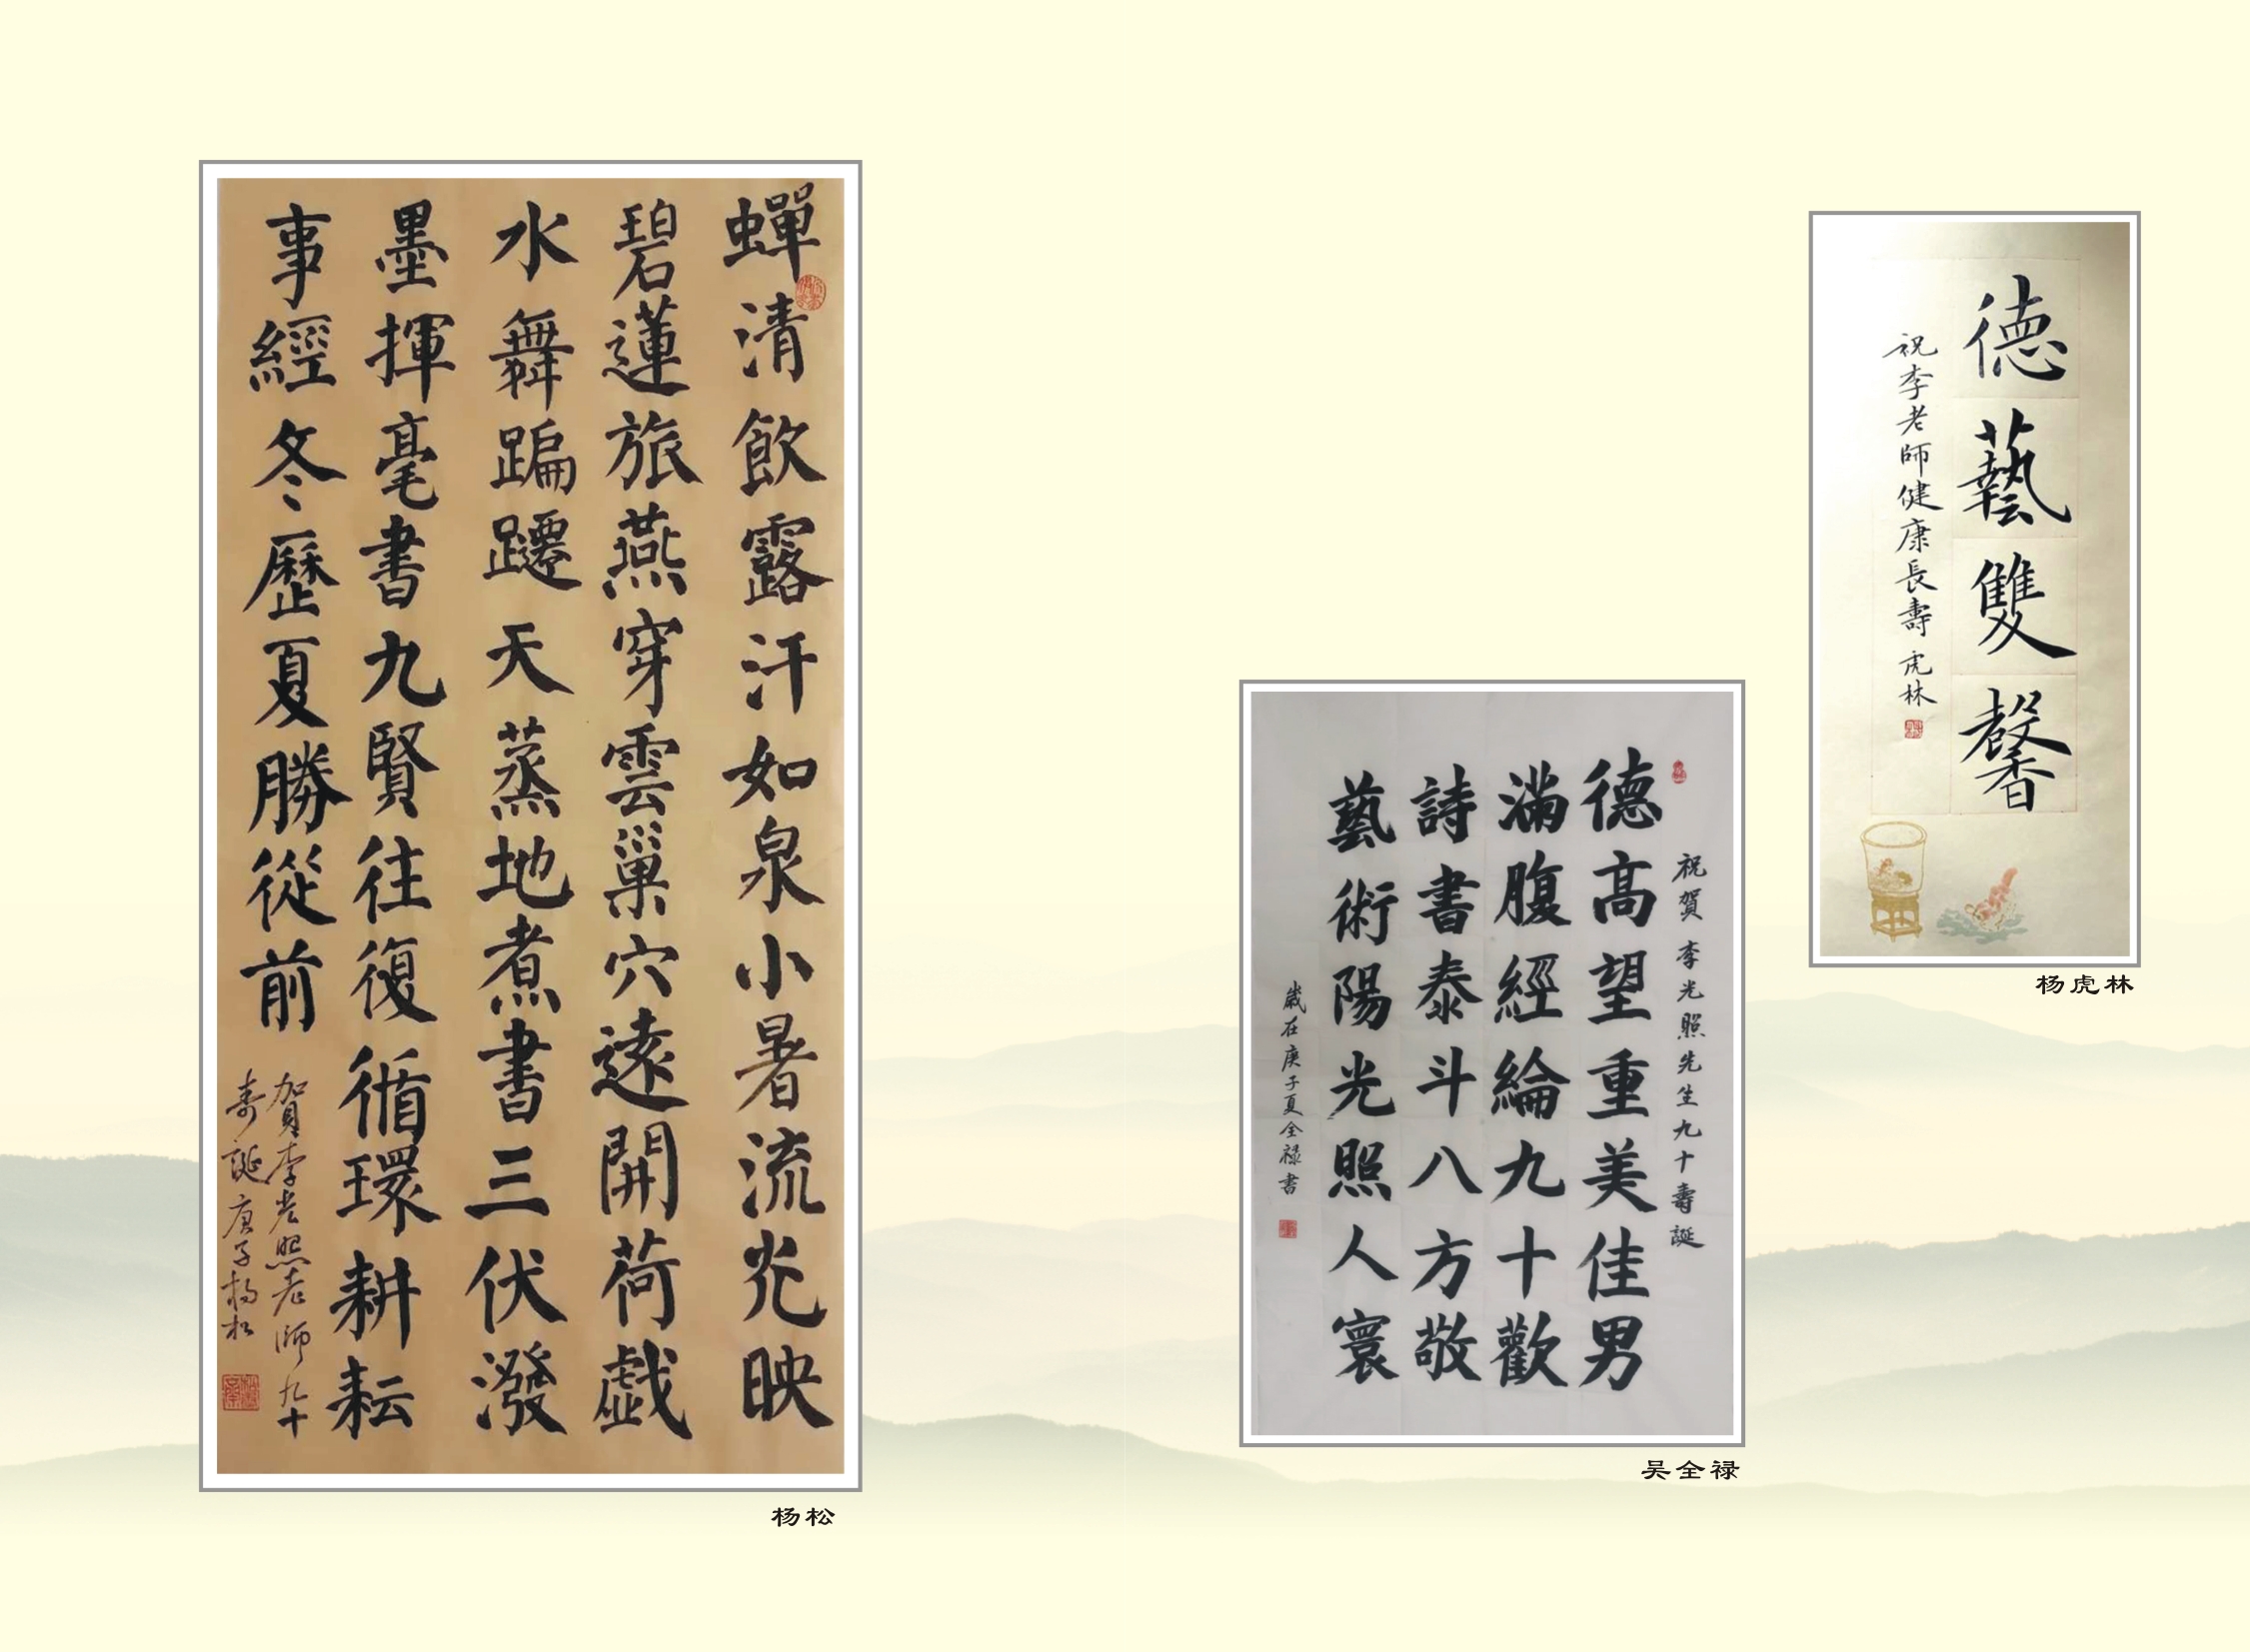 蟬清飲露汗如泉小暑流光映
碧蓮旅燕穿雲巢穴遠開荷戯
水舞蹁躚天蒸地煮書三伏潑
墨揮毫書九賢往復循環耕耘
事經冬歷夏勝從前
賀李光照老師九十
寿誕庚子杨松
杨松
祝賀李光照先生九十壽誕
德高望重美佳男
滿腹經綸九十歡
詩書泰斗八方敬
藝術陽光照人寰
歲在庚子夏全禄書
吴全禄
德藝雙馨
祝李老師健康長壽 虎林
杨虎林